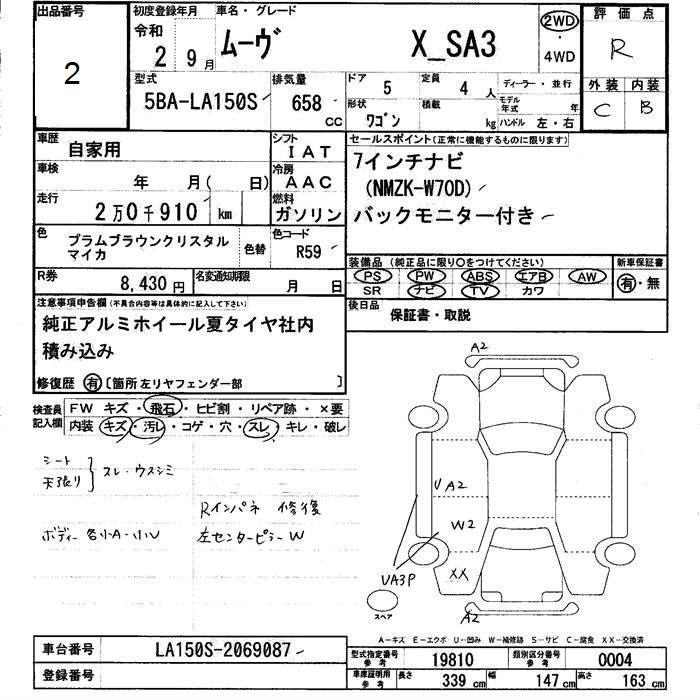 出品番号
2
初度登録年月
令和
2 9月
車名・グレード
ムーヴ X_SA3
2WD
・
4WD
評価点
R
外装 内装
C B
型式
5BA-LA150S
排気量
658 cc
ドア 5
定員 4 人
形状 ワゴン
積載 kg
ディーラー・並行
モデル年式 年
ハンドル 左・右
車歴 自家用
シフト IAT
車検 年 月( 日)
冷房 AAC
走行 2万0千910 km
燃料 ガソリン
色 プラムブラウンクリスタル
マイカ
色替
色コード R59
R券 8,430円
名変通知期限 月 日
セールスポイント(正常に機能するものに限ります)
7インチナビ
(NMZK-W70D)
バックモニター付き
装備品(純正品に限り○をつけてください)
PS PW ABS エアB AW
SR ナビ TV カワ
新車保証書
有・無
後日品 保証書・取説
注意事項申告欄(不具合内容等は具体的に記入して下さい)
純正アルミホイール夏タイヤ社内
積み込み
修復歴 有〔箇所左リヤフェンダー部 〕
検査員記入欄
FW キズ・飛石・ヒビ割・リペア跡・×要
内装 キズ・汚レ・コゲ・穴・スレ・キレ・破レ
シート
天張り
スレ・ウスシミ
Rインパネ 修復
ボディー 各小A・小U
左センターピラーW
A2
U A2
W2
XX
UA3P
A2
スペア
A-キズ E-エクボ U-凹み W-補修跡 S-サビ C-腐食 XX-交換済
車台番号 LA150S-2069087
登録番号
型式指定番号 参考 19810
類別区分番号 参考 0004
車庫証明用 参考 長さ 339 cm 幅 147 cm 高さ 163 cm